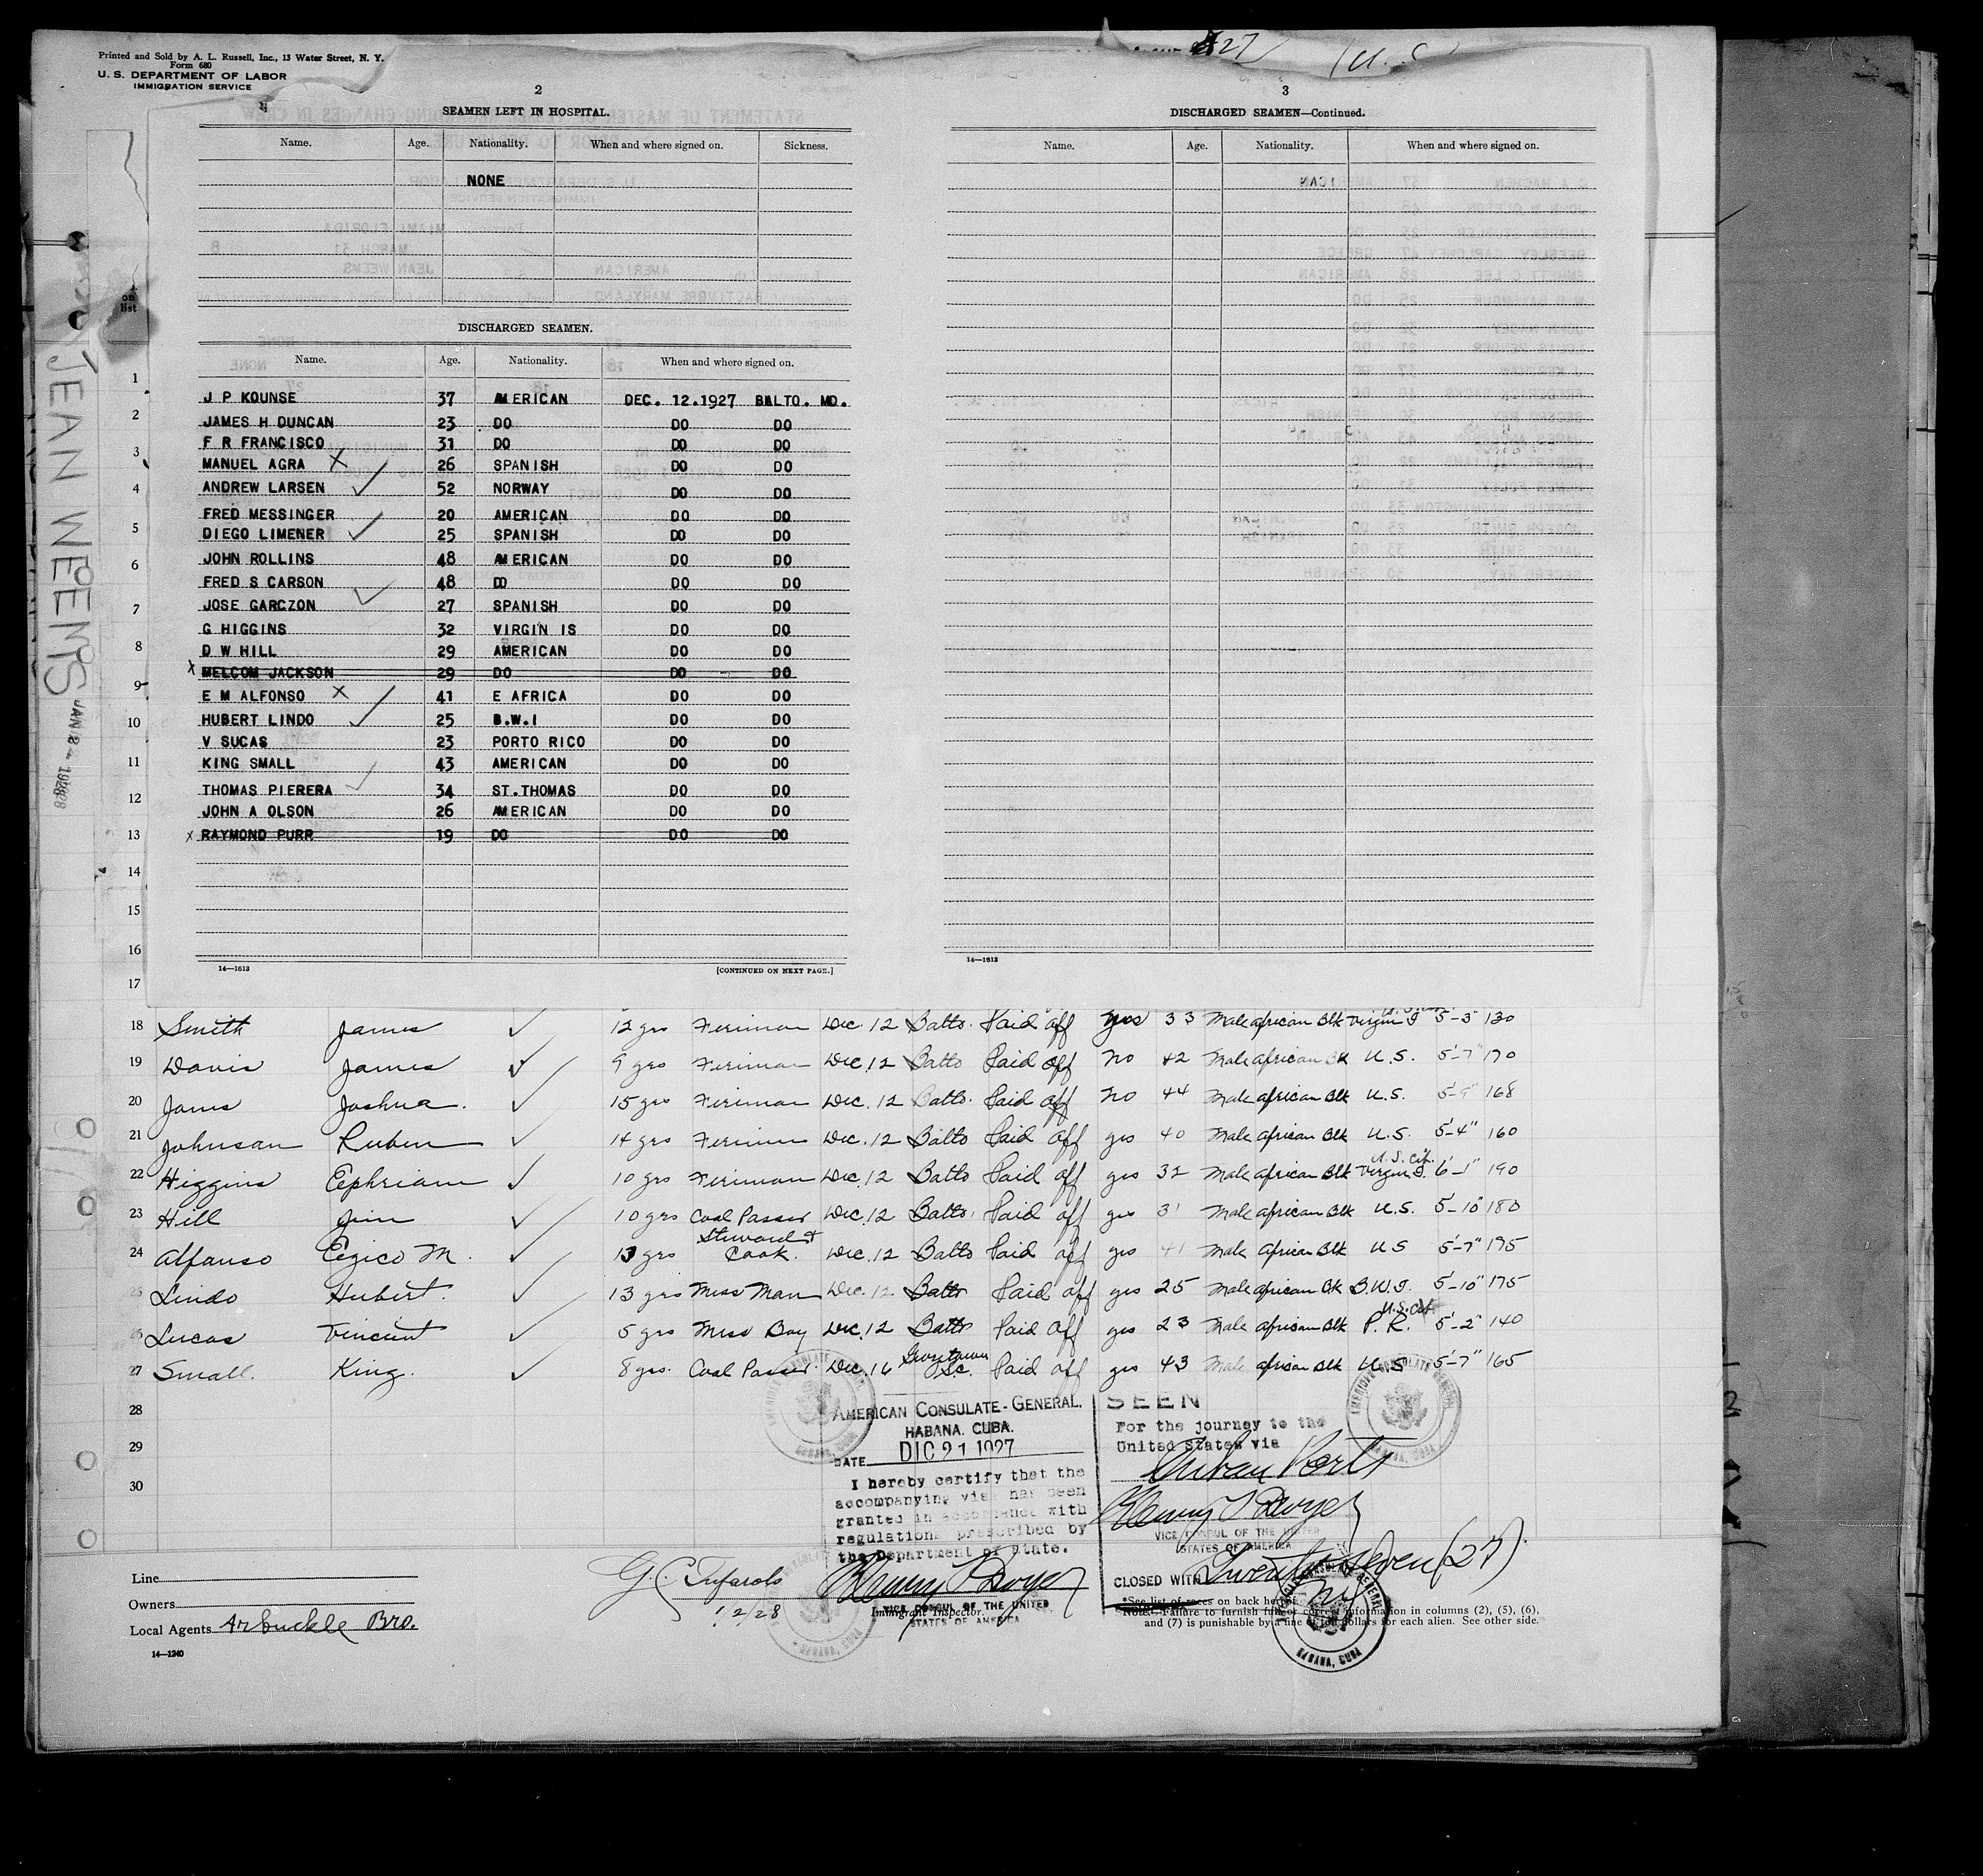 Printed and Sold by A. L. Russell, Inc., 13 Water Street, N. Y.
Form 680
U. S. DEPARTMENT OF LABOR
IMMIGRATION SERVICE
27 (U. S
2
SEAMEN LEFT IN HOSPITAL.
Name. Age. Nationality. When and where signed on. Sickness.
NONE
DISCHARGED SEAMEN.
Name. Age. Nationality. When and where signed on.
J P KOUNSE 37 AMERICAN DEC. 12.1927 BALTO. MD.
JAMES H DUNCAN 23 DO DO DO
F R FRANCISCO 31 DO DO DO
MANUEL AGRA X 26 SPANISH DO DO
ANDREW LARSEN ✓ 52 NORWAY DO DO
FRED MESSINGER 20 AMERICAN DO DO
DIEGO LIMENER ✓ 25 SPANISH DO DO
JOHN ROLLINS 48 AMERICAN DO DO
FRED S CARSON 48 DO DO DO
JOSE GARCZON ✓ 27 SPANISH DO DO
G HIGGINS 32 VIRGIN IS DO DO
D W HILL 29 AMERICAN DO DO
X MELCOM JACKSON 29 DO DO DO
E M ALFONSO X 41 E AFRICA DO DO
HUBERT LINDO ✓ 25 B.W.I DO DO
V SUCAS 23 PORTO RICO DO DO
KING SMALL 43 AMERICAN DO DO
THOMAS PIERERA ✓ 34 ST.THOMAS DO DO
JOHN A OLSON 26 AMERICAN DO DO
X RAYMOND PURR 19 DO DO DO
14—1613 [CONTINUED ON NEXT PAGE.]
3
DISCHARGED SEAMEN—Continued.
Name. Age. Nationality. When and where signed on.
14—1613
on
list
JEAN WEEMS
JAN 2 - 1928
1
2
3
4
5
6
7
8
9
10
11
12
13
14
15
16
17
18 Smith James ✓ 12 yrs Fireman Dec. 12 Balto. Paid off yes 33 Male African Blk Virgin I 5-3" 130
19 Davis James ✓ 9 yrs Fireman Dec. 12 Balto Paid off No 42 Male African Blk U.S. 5'-7" 170
20 Jams Joshua. ✓ 15 yrs Fireman Dec. 12 Balto. Paid off No 44 Male African Blk U.S. 5-9" 168
21 Johnson Ruben ✓ 14 yrs Fireman Dec. 12 Balto Paid off yes 40 Male African Blk U.S. 5'-4" 160
22 Higgins Ephriam ✓ 10 yrs Fireman Dec. 12 Balto Paid off yes 32 Male African Blk U.S. Cit. Virgin I. 6'-1" 190
23 Hill Jim ✓ 10 yrs Coal Passer Dec. 12 Balto. Paid off yes 31 Male African Blk U.S. 5'-10" 180
24 Alfonso Egico M. ✓ 13 yrs Steward & Cook. Dec. 12 Balto Paid off yes 41 Male African Blk U S 5'-7" 195
25 Lindo Hubert. ✓ 13 yrs Mess Man Dec. 12 Balto Paid off yes 25 Male African Blk B.W.I. 5'-10" 175
26 Lucas Vincent ✓ 5 yrs Mess Boy Dec. 12 Balto Paid off yes 23 Male African Blk U.S. Cit. P.R. 5'-2" 140
27 Small. King. ✓ 8 yrs. Coal Passer Dec. 16 S.C. Paid off yes 43 Male African Blk U.S 5'-7" 165
28
29
30
AMERICAN CONSULATE-GENERAL.
HABANA. CUBA.
DATE DIC 21 1927
I hereby certify that the
accompanying visa has been
granted in accordance with
regulations prescribed by
the Department of State.
Henry T Dwyer
VICE CONSUL OF THE UNITED
STATES OF AMERICA
SEEN
For the journey to the
United States via
Cuban Ports
Henry T Dwyer
VICE CONSUL OF THE UNITED
STATES OF AMERICA
CLOSED WITH Twenty seven (27)
HABANA, CUBA
Line
Owners
Local Agents Arbuckle Bro.
14—1240
1/2/28
Immigrant Inspector.
*See list of races on back hereof.
Note.—Failure to furnish full or correct information in columns (2), (5), (6),
and (7) is punishable by a fine of ten dollars for each alien. See other side.